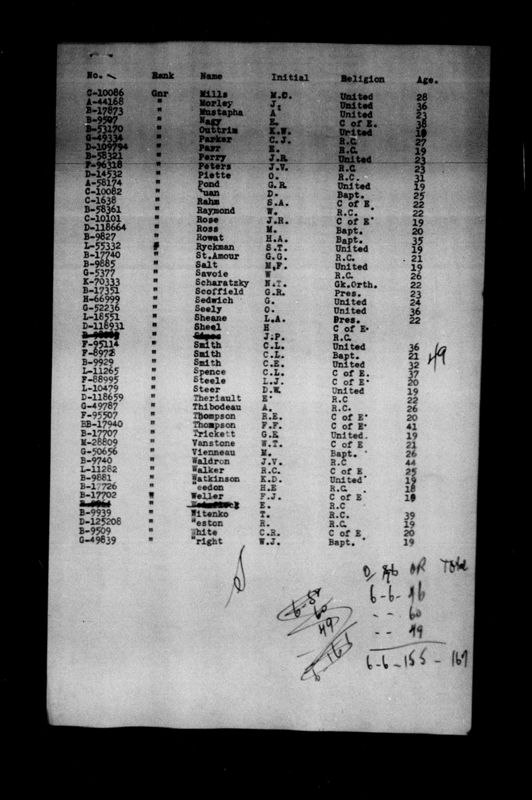 No. Rank Name Initial Religion Age.
C-10086 Gnr Mills M.C. United 28
A-44168 " Morley J. United 36
B-17873 " Mustapha A United 23
B-9507 " Nagy E. C of E. 38
B-53170 " Outtrim K.W. United 19
G-49334 " Parker C.J. R.C. 27
D-109794 " Parr E. R.C. 19
B-58321 " Perry J.R. United 23
F-96318 " Peters J.V. R.C. 23
D-14532 " Piette O. R.C. 31
A-58174 " Pond G.R. United 19
C-10082 " uan D. Bapt. 25
C-1638 " Rahm S.A. C of E. 22
B-58361 " Raymond W. R.C. 22
C-10101 " Rose J.R. C of E 19
D-118664 " Ross M. Bapt. 20
B-9827 " Rowat H.A. Bapt. 35
L-55332 " Ryckman S.T. United 19
B-17740 " St.Amour G.G. R.C. 21
B-9885 " Salt M.F. United 19
G-5377 " Savoie W R.C. 26
K-70333 " Scharatzky N.T. Gk.Orth. 22
B-17351 " Scoffield G.R. Pres. 23
H-66999 " Sedwich G. United 24
G-52236 " Seely O. United 36
L-18551 " Sheane L.A. Pres. 22
D-118931 " Sheel H C of E.
" J.P. R.C.
F-95114 " Smith C.L. United 36
F-8972 " Smith C.L. Bapt. 21
B-9929 " Smith C.E. United 32
L-11265 " Spence C.L. C of E. 37
F-88995 " Steele L.J. C of E 20
L-10479 " Steer D.W. United 19
D-118659 " Theriault E R.C 22
G-49787 " Thibodeau A. R.C. 26
F-95507 " Thompson R.E. C of E 20
BB-17940 " Thompson F.F. C of E 41
B-17707 " Trickett G.E United. 19
M-28809 " Vanstone W.T. C of E 21
G-50656 " Vienneau M. Bapt. 26
B-9740 " Waldron J.V. R.C 44
L-11282 " Walker R.C. C of E 25
B-9881 " Watkinson K.D. United 19
B-17726 " eedon H.E R.C. 18
B-17702 " Weller F.J. C of E 18
" E. R.C
B-9939 " Witenko T. R.C. 39
D-125208 " eston R. R.C. 19
B-9509 " White C.R. C of E 20
G-49839 " right W.J. Bapt. 19
49
OR Total
6-6- 46
- - 60
- - 49
6-6-155 - 167
60
49